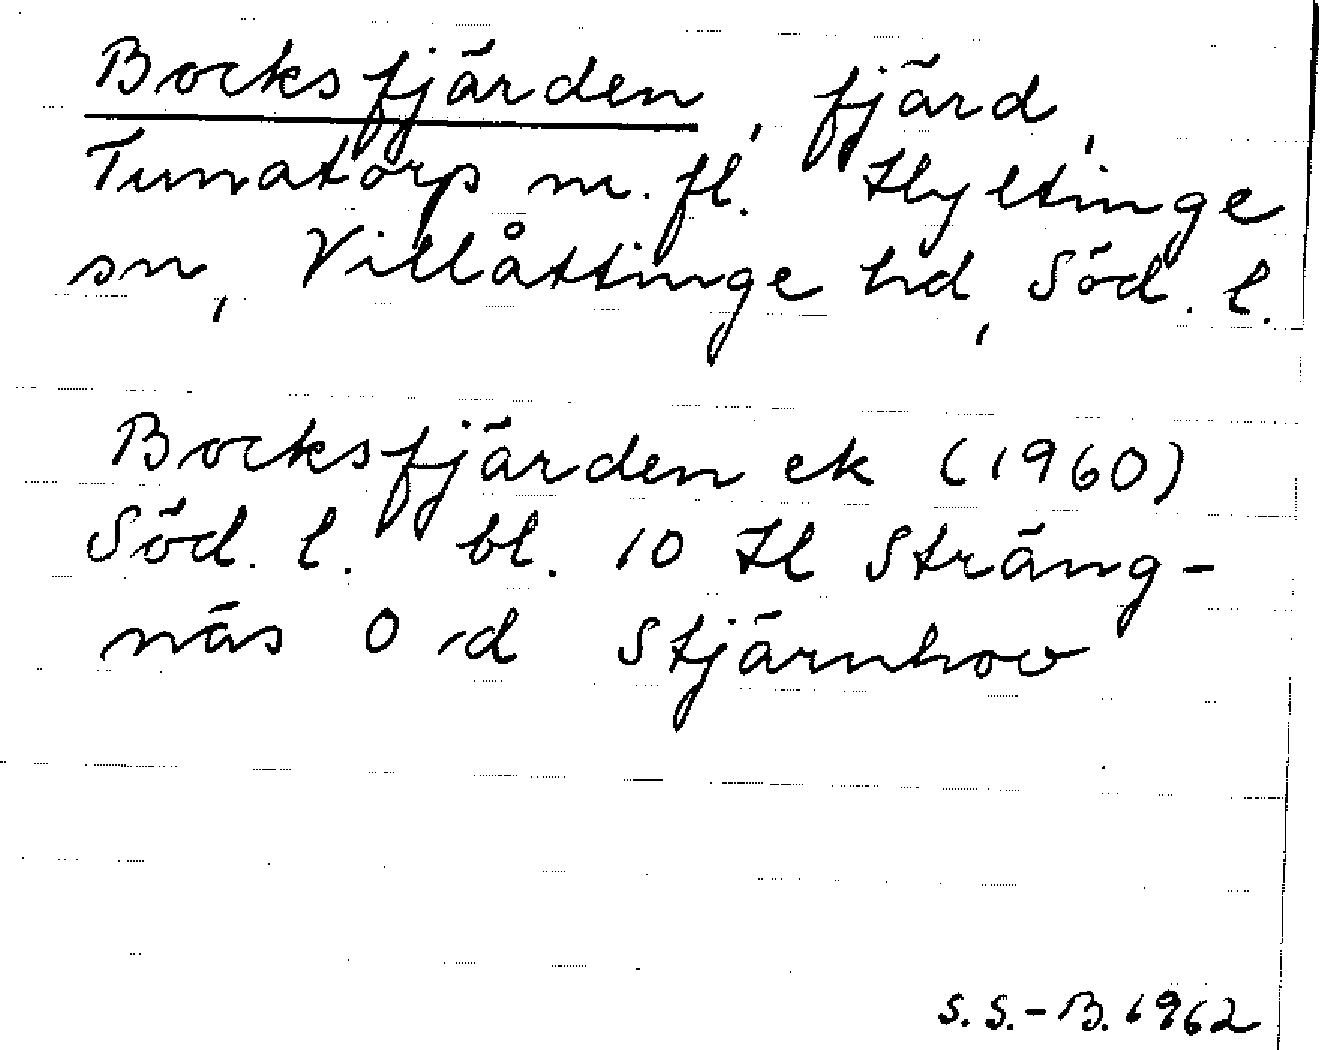 Bocksfjärden, fjärd,
Tunatorp m. fl. Hyltinge
sn, Villåttinge hd, Söd. l.
Bocksfjärden ek (1960)
Söd. l. bl. 10 Hl Sträng-
näs O id Stjärnhov
S.S.-B. 1962